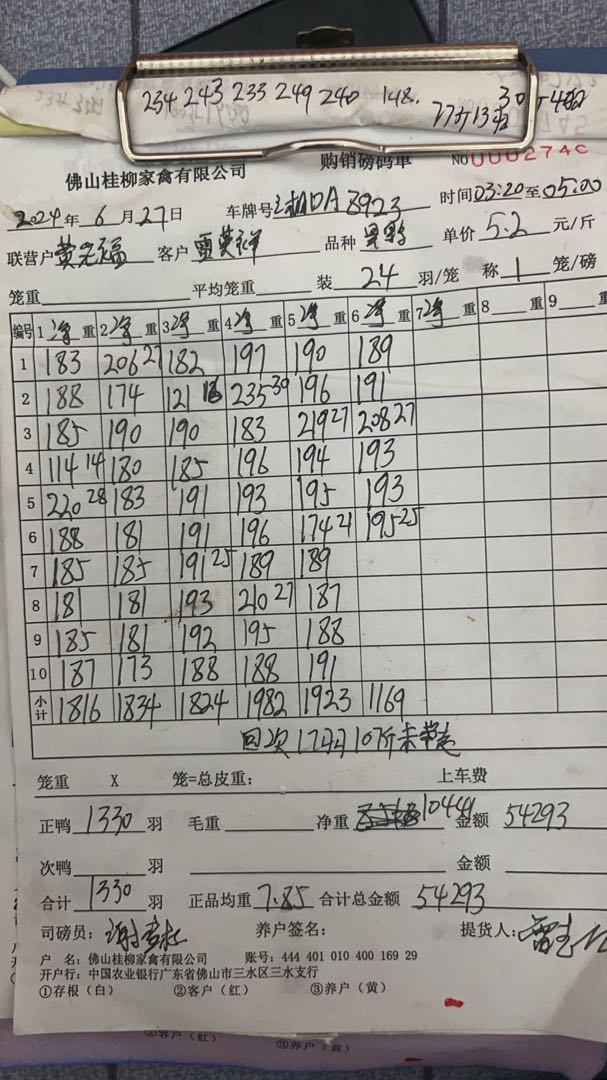 234 243 233 249 240 148.
佛山桂柳家禽有限公司 购销磅码单 NO 000274
2024年 6 月 27 日 车牌号 DA 8923 时间 03:20 至 05:00
联营户 客户 品种 单价 5.2 元/斤
笼重 平均笼重 装 24 羽/笼 称 1 笼/磅
编号 1 净 重 2 净 重 3 净 重 4 净 重 5 净 重 6 净 重 7 净 重 8 重 9
1 183 206 27 182 197 190 189
2 188 174 121 235 30 196 191
3 185 190 190 183 219 27 208 27
4 114 14 180 185 196 194 193
5 220 28 183 191 193 195 193
6 188 181 191 196 174 21 195 25
7 185 185 191 25 189 189
8 181 181 193 210 27 187
9 185 181 192 195 188
10 187 173 188 188 191
小计 1816 1834 1824 1982 1923 1169
17 10斤未
笼重 X 笼=总皮重: 上车费
正鸭 1330 羽 毛重 净重 10441 金额 54293
次鸭 羽 金额
合计 1330 羽 正品均重 7.85 合计总金额 54293
司磅员: 养户签名: 提货人:
户 名: 佛山桂柳家禽有限公司 账号: 444 401 010 400 169 29
开户行: 中国农业银行广东省佛山市三水区三水支行
①存根(白) ②客户(红) ③养户(黄)
②客户(红) ③养户(黄)